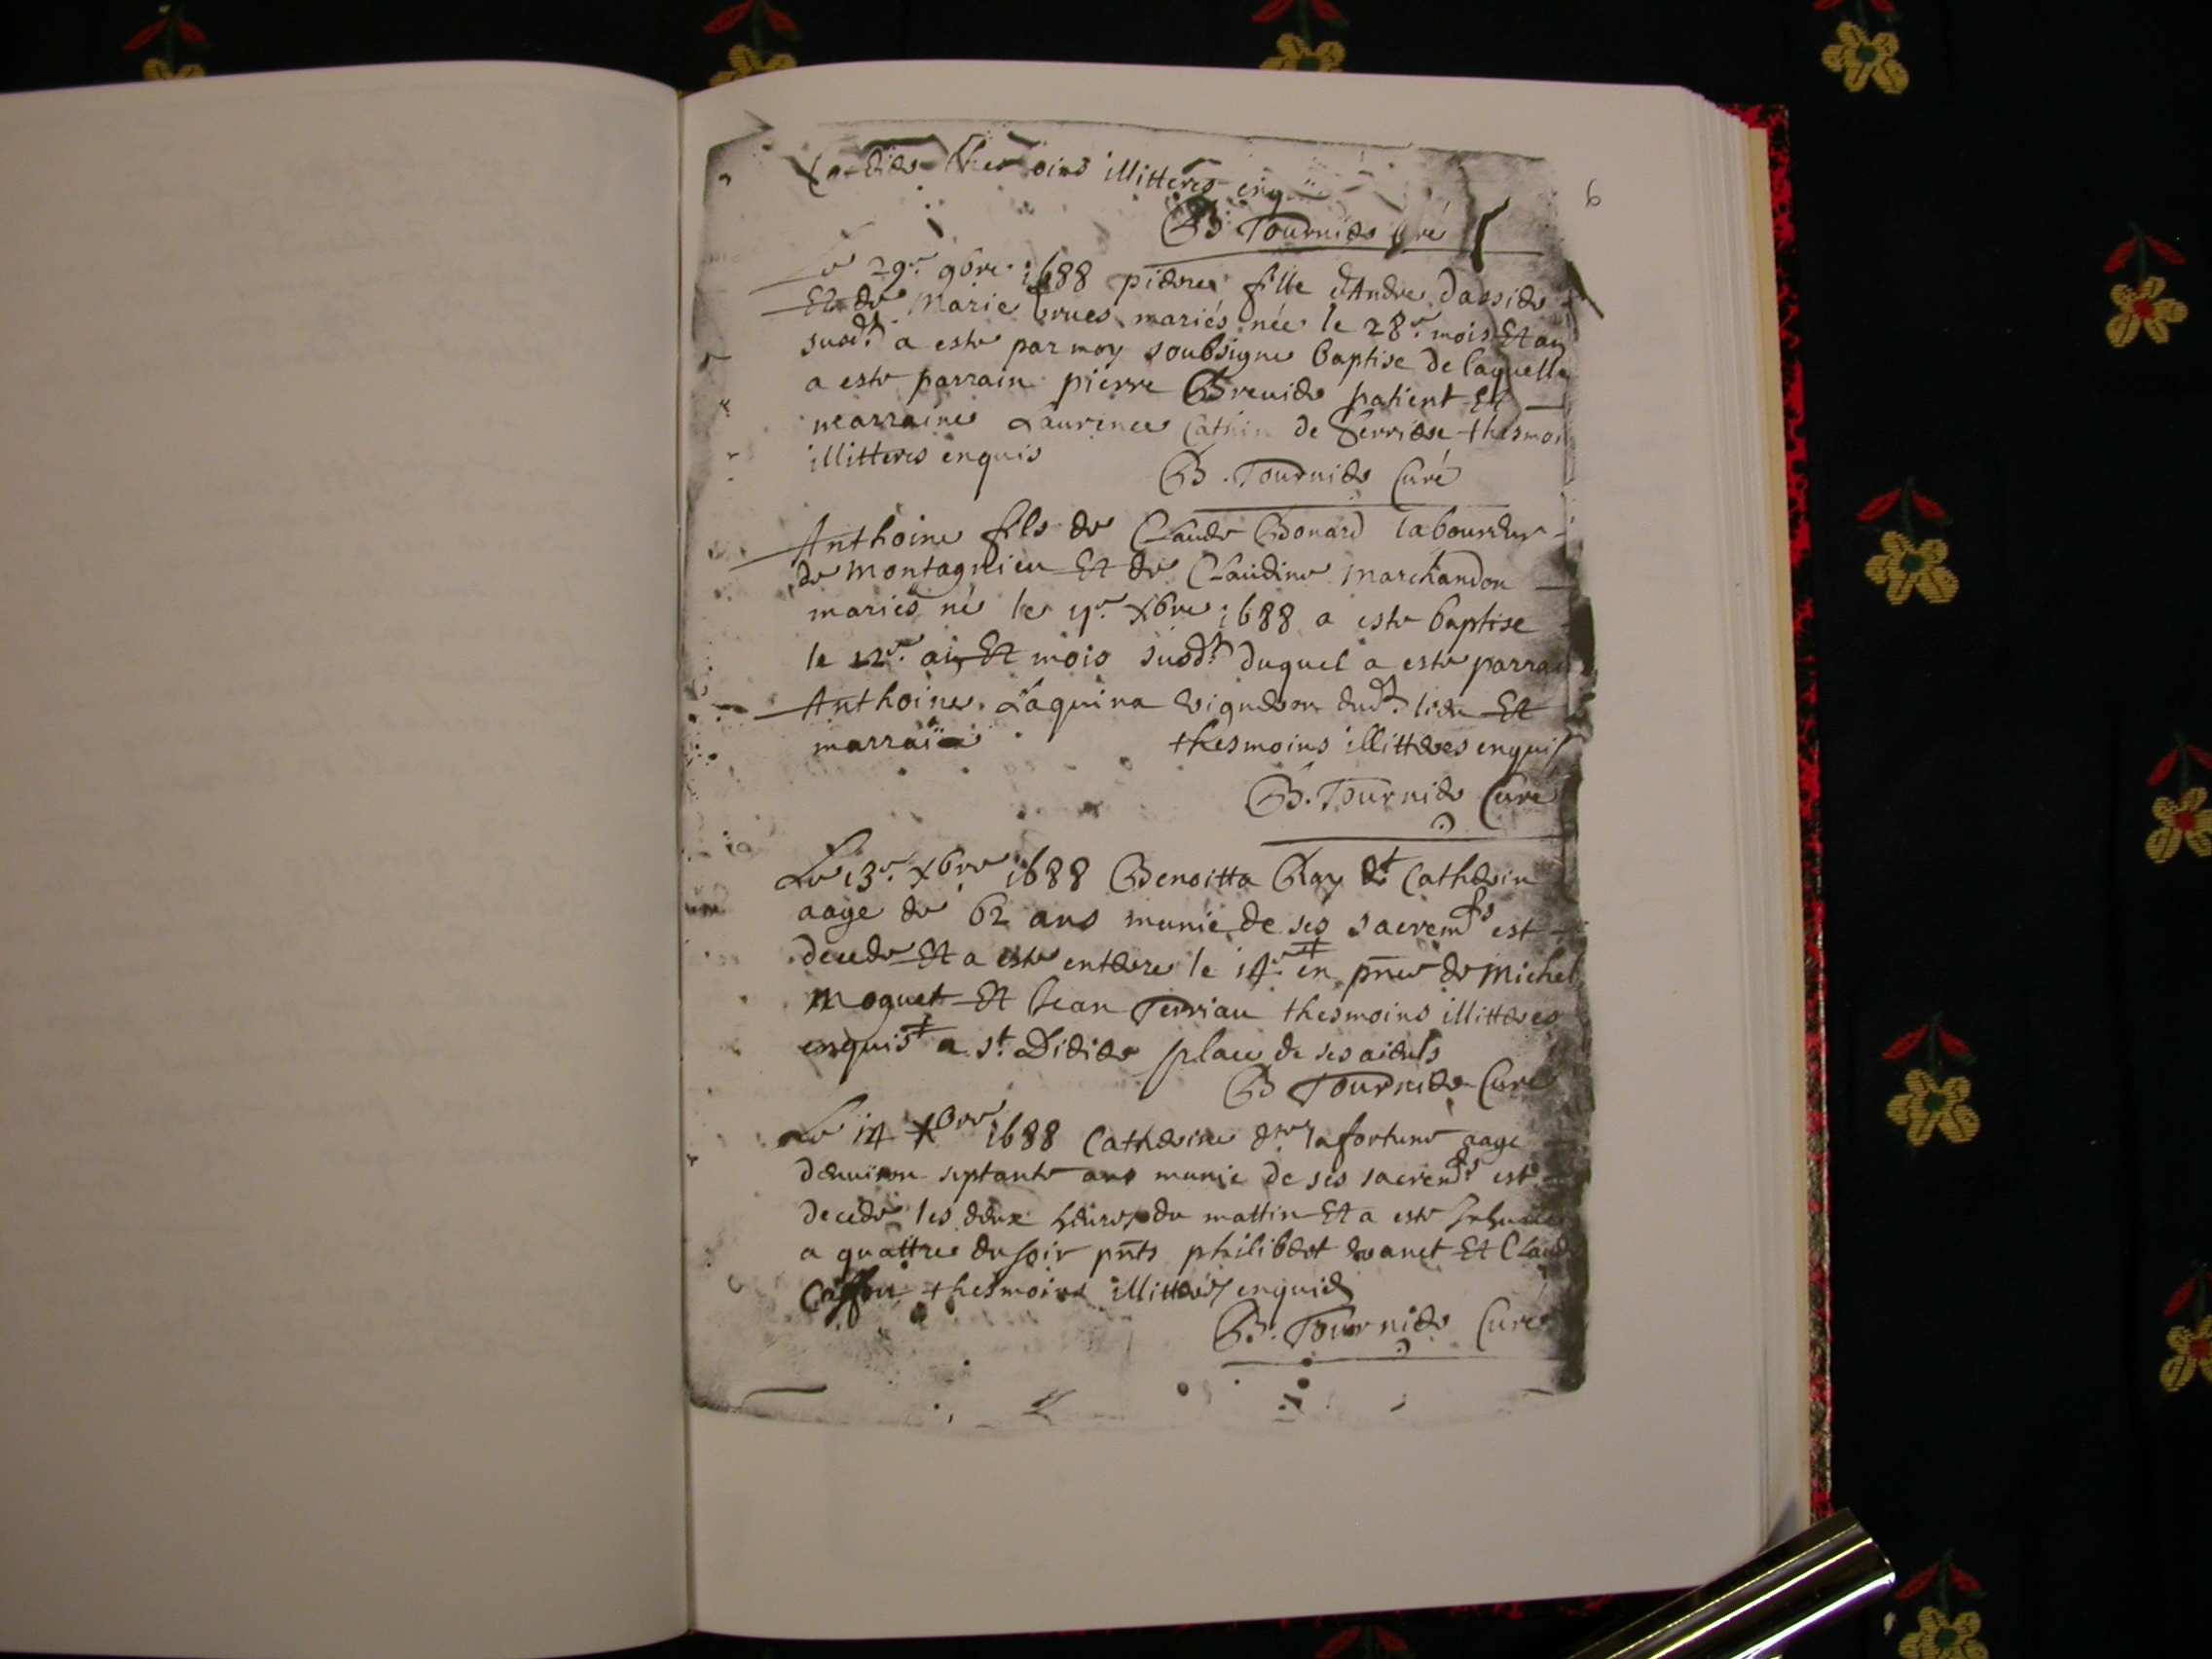 illitteres enq
6
B Tournier Curé
29e 9bre 1688 pierre fille d'Andre dassier
Et de Marie brues mariés née le 28e mois Et an
susd.t a este par moy soubsigne baptise de laquelle
a este parrain pierre Brevide patient Et
marraine Laurence Cathin de Perriere thesmoi
illitteres enquis
B. Tournier Curé
Anthoine fils de Claude Bonard laboureur
de Montagnieu Et de Claudine Marchandon
mariés né le Xbre 1688 a este baptise
le 12e an Et mois susd.t duquel a este parrai
Anthoine Laquina vigneron dud.t lieu Et
marraine thesmoins illitteres enquis
B. Tournier Curé
Le 13e Xbre 1688 Benoitta Ray d.t Catherin
aage de 62 ans munie de ses sacrem.ts est
decede Et a este entere le 14e en pñce de Michel
Moguet Et Jean Terriau thesmoins illitteres
enquis a S.t Didier place de ses aieuls
B Tournier Curé
Le 14 Xbre 1688 Catherine lafortune aage
denviron septante ans munie de ses sacrem.ts est
decede les deux heures du mattin Et a este
a quattre du soir pñts philibert Et Claud
thesmoins illitteres enquis
B. Tournier Curé